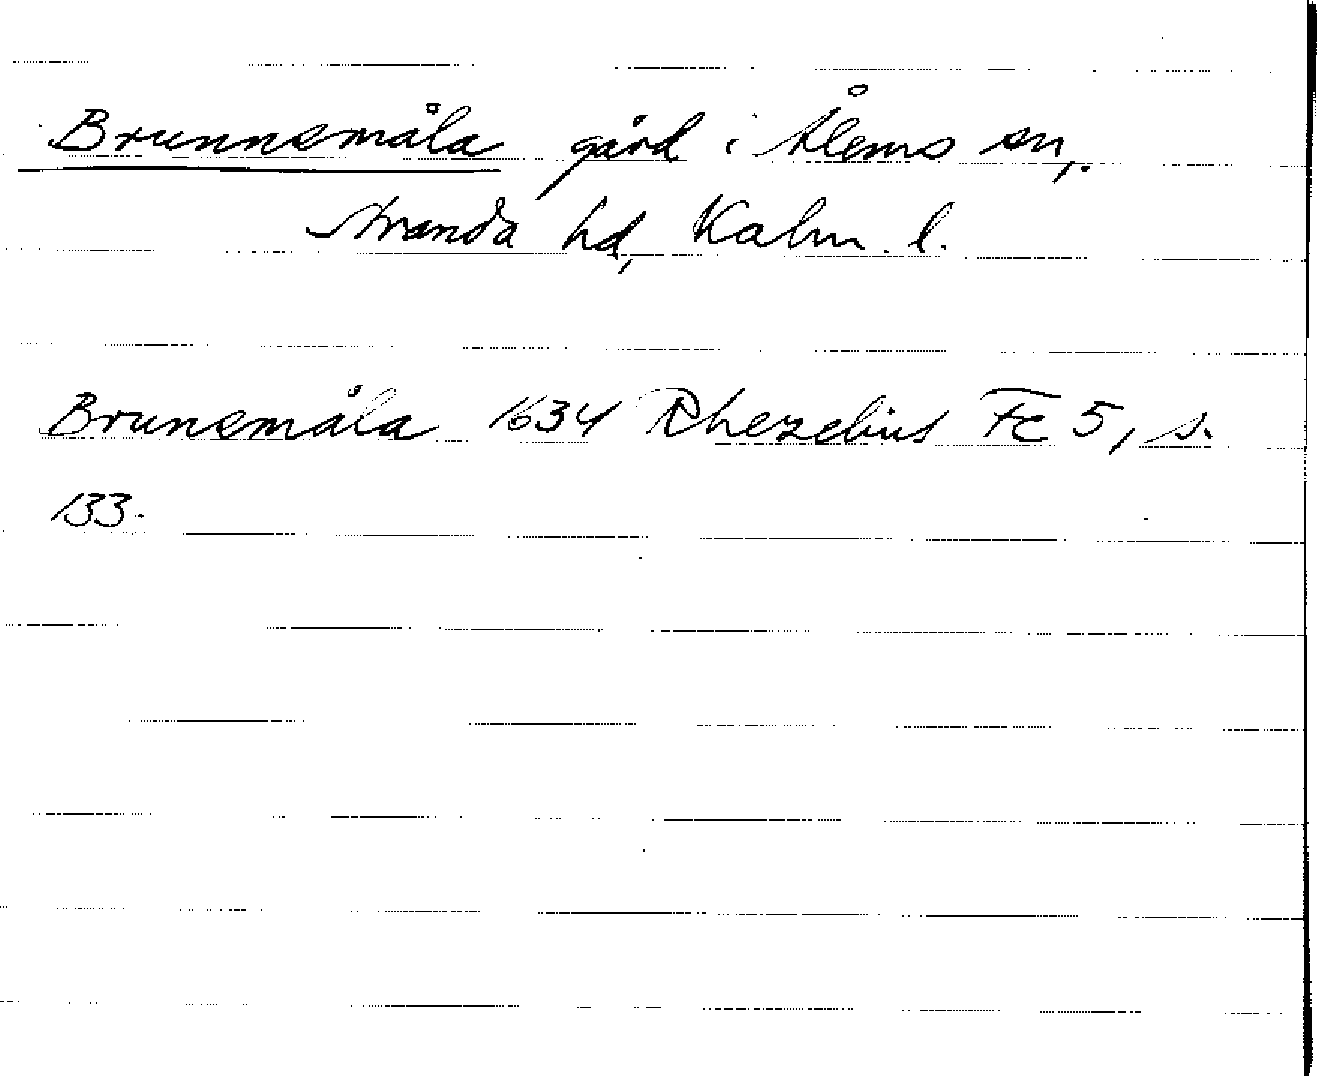 Brunnsmåla gård i Ålems sn,.
Stranda hd, Kalm. l.
Brunsmåla 1634 Rhezelius Fc 5, s.
133.